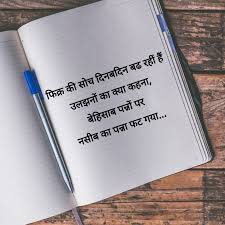 फिक्र की सोच दिनबदिन बढ रहीं हैं
उलझनों का क्या कहना,
बेहिसाब पन्नों पर
नसीब का पन्ना फट गया...